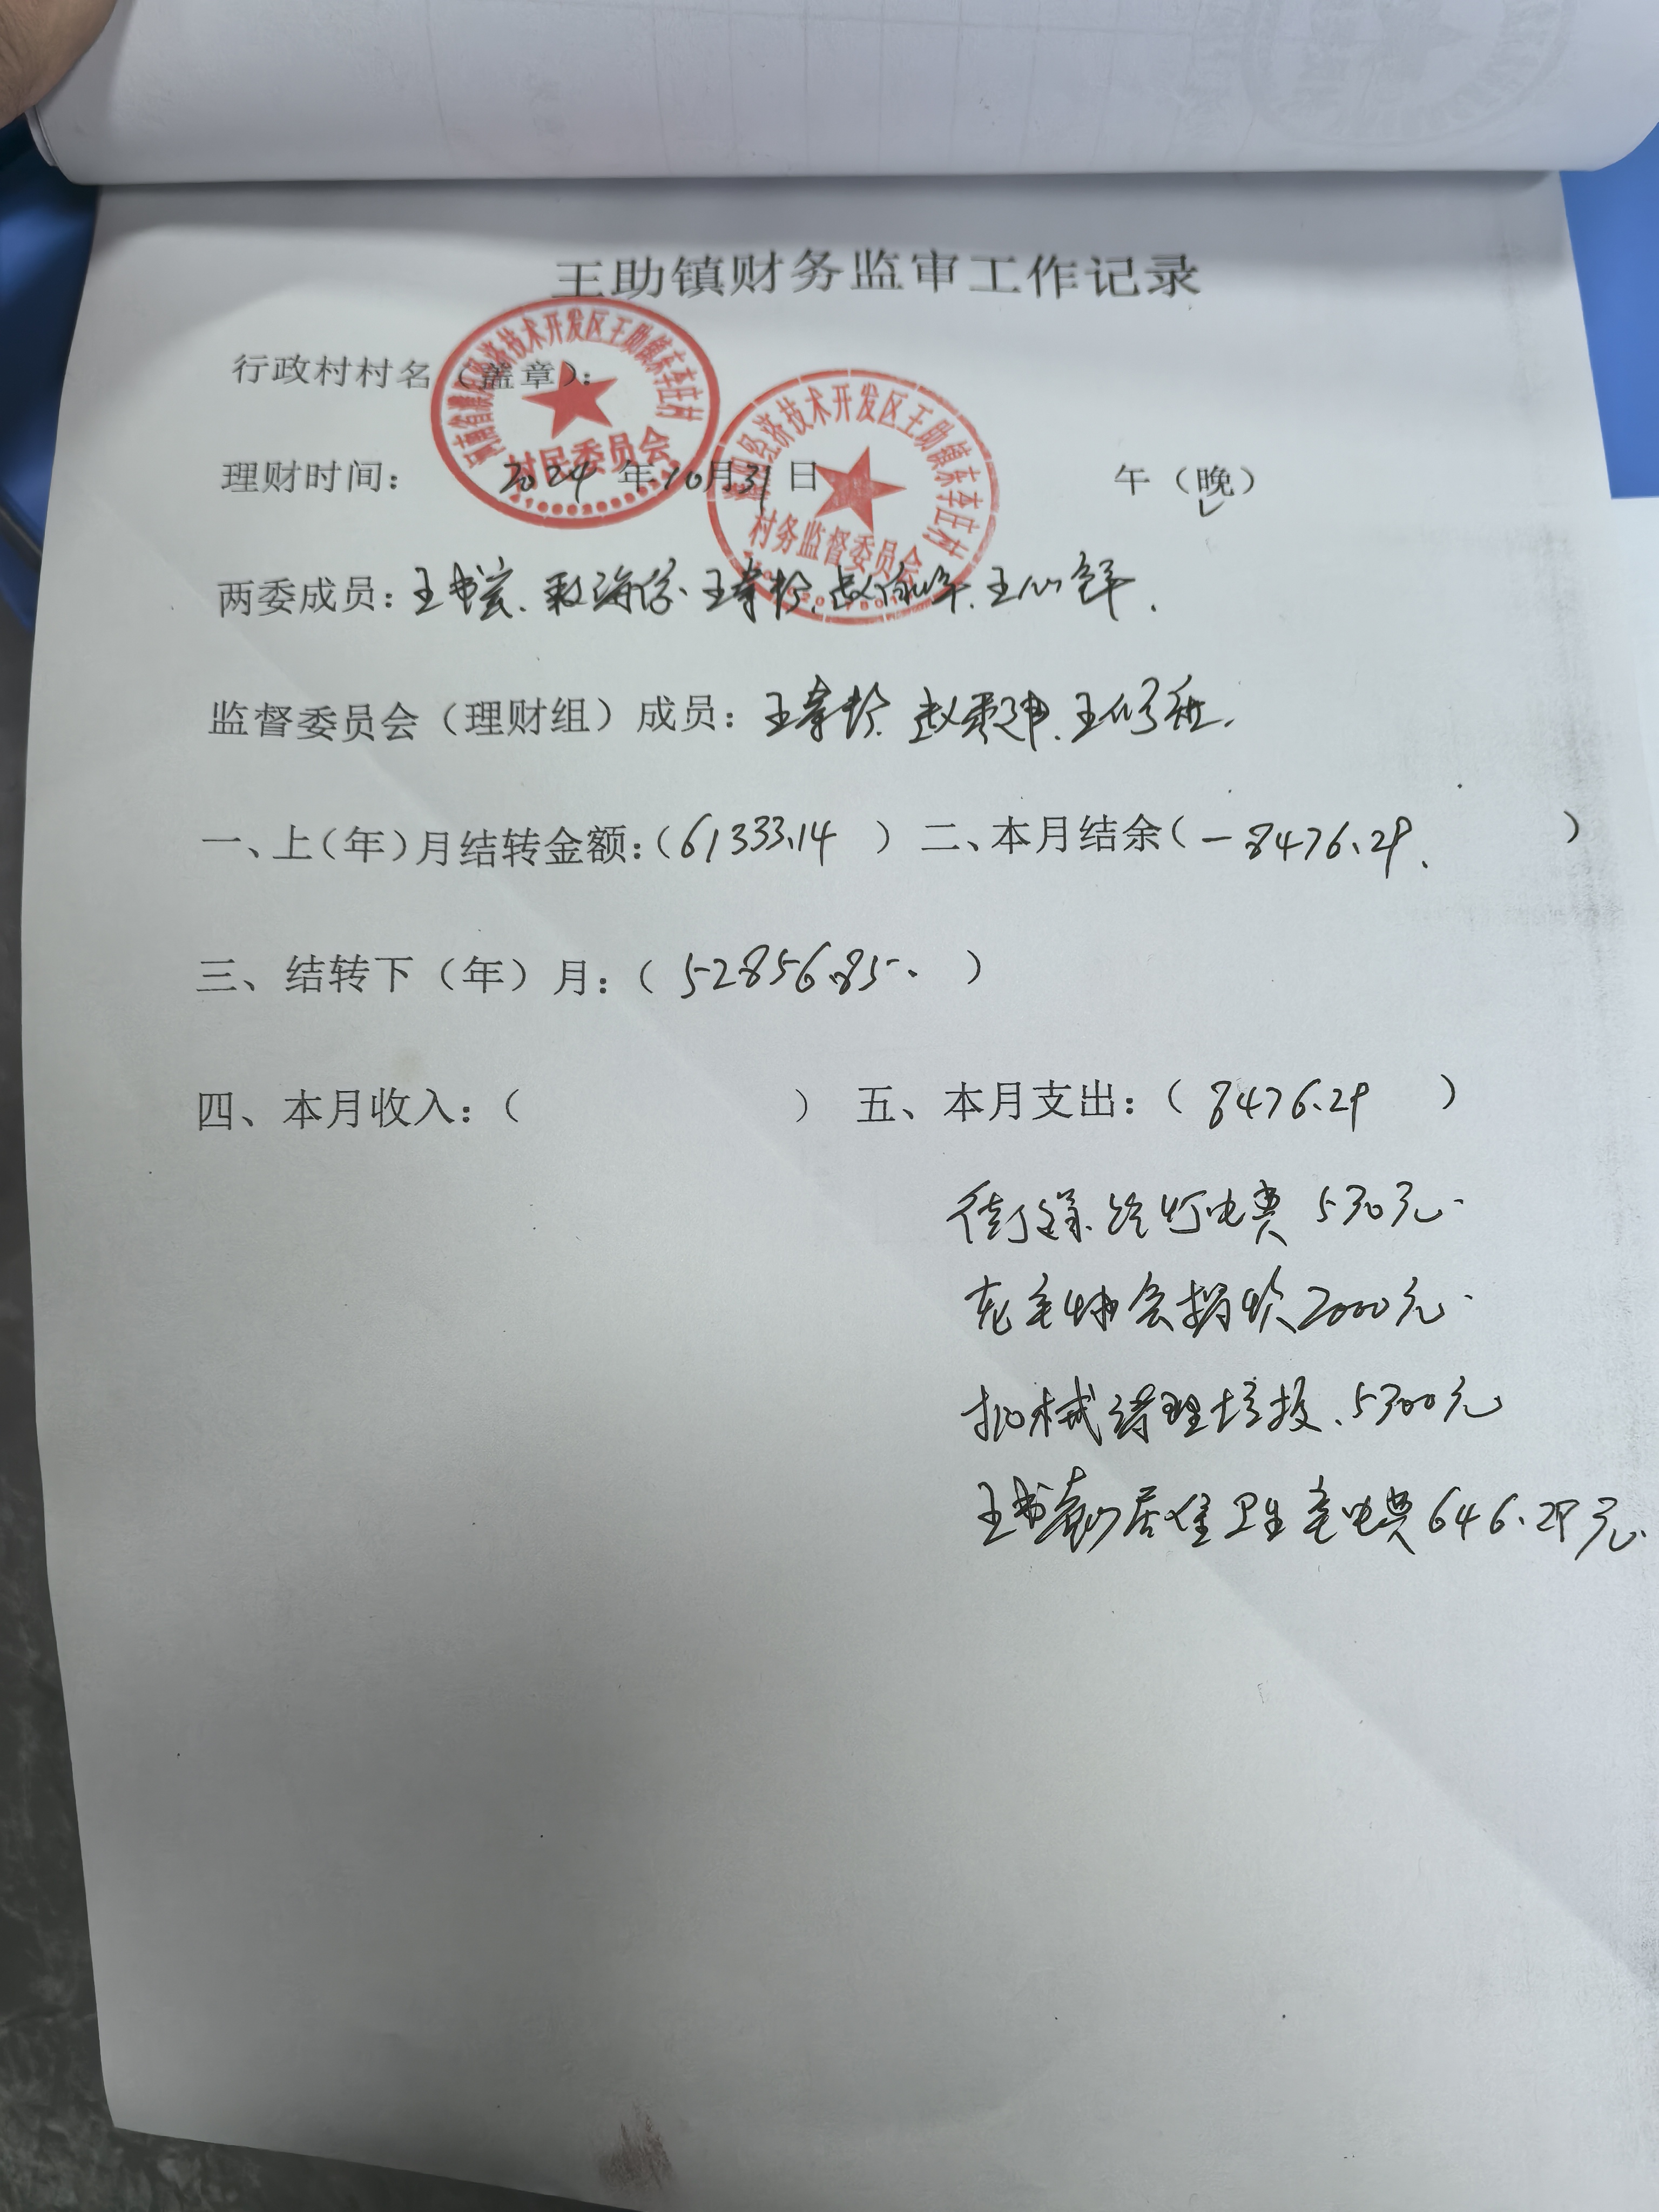 王助镇财务监审工作记录
行政村村名（盖章）：
河南省濮阳经济技术开发区王助镇东李庄村
村民委员会
濮阳经济技术开发区王助镇东李庄村
村务监督委员会
理财时间： 2024 年10月31日 午（晚）
两委成员：王书宾、王孝龄、
监督委员会（理财组）成员：王孝龄、
一、上（年）月结转金额：（61333.14 ）二、本月结余（-8476.29. ）
三、结转下（年）月：（52856.85. ）
四、本月收入：（ ） 五、本月支出：（8476.29 ）
街道 路灯电费 530元.
老年协会捐款2000元.
机械清理垃圾、5300元
王书勤居住卫生室电费646.29元.